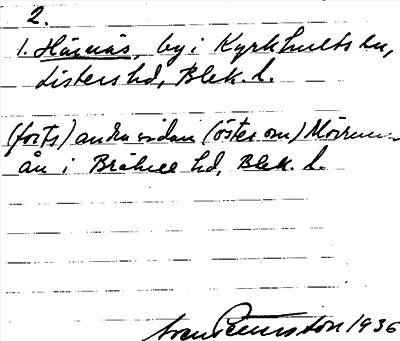 2.
1. Härnäs, by i Kyrkhults sn,
Listers hd, Blek. l.
(forts) andra sidan (öster om) Mörrums-
ån i Bräkne hd, Blek. l.
Sven Benson 1936